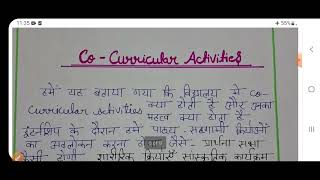 11:35
55%
Co-Curricular Activities
हमें यह बताया गया कि विद्यालय में Co-
Curricular activities क्या होती है और उनका
महत्व क्या होता है-
इंटर्नशिप के दौरान हमें पाठ्य-सहगामी क्रियाओं
का अवलोकन करना जैसे- प्रार्थना सभा
कैसी होगी, शारीरिक क्रियाएँ सांस्कृतिक कार्यक्रम